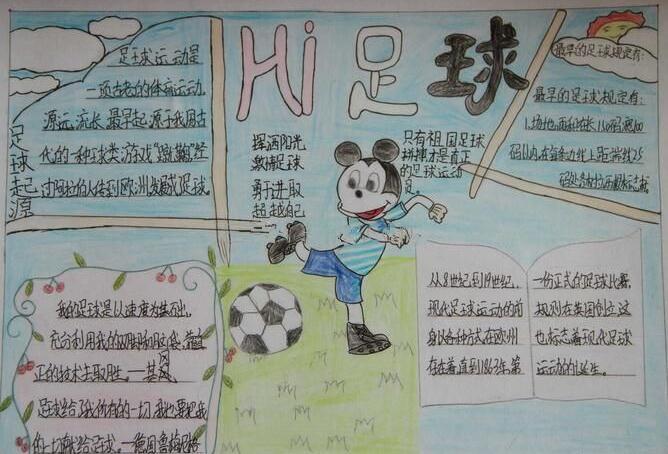 Hi 足球
足球起源
足球运动是
一项古老的体育运动,
源远流长,最早起源于我国古
代的一种球类游戏“蹴鞠”经
过阿拉伯人传到欧洲发展成足球.
挥洒阳光
激情足球
勇于进取
超越自己
只有祖国足球
拼搏才是真正
的足球运动
员
最早的足球规定有:
最早的足球规定有:
1.场地面积
码以内在每条边线上距端线25
码处各
我的足球是以速度为基础,
充分利用我的双脚和
正的技术去取胜。—其风
足球给了我所有的一切,我也要把我
的一切献给足球。—德国鲁梅尼格
从8世纪到19世纪,
现代足球运动的前
身以各种方式在欧洲
存在着,直到1863年,第
一份正式的足球比赛
规则在英国创立,这
也标志着现代足球
运动的诞生。